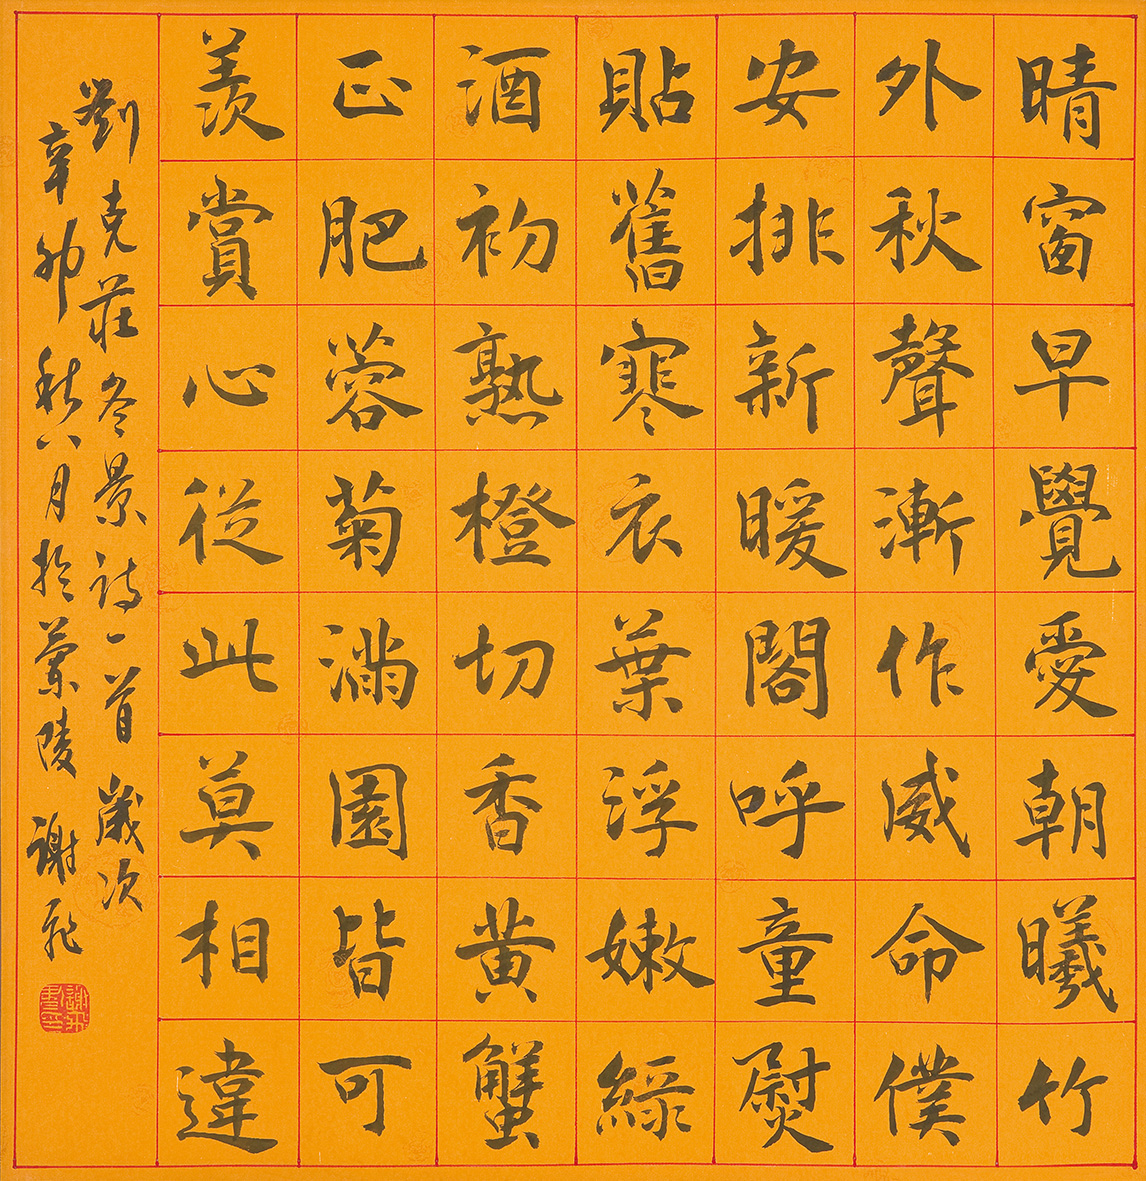 晴窗早覺愛朝曦竹
外秋聲漸作威命僕
安排新暖閣呼童熨
貼舊寒衣葉浮嫩綠
酒初熟橙切香黃蟹
正肥蓉菊滿園皆可
羨賞心從此莫相違
劉克莊冬景詩一首歲次
辛卯秋八月於蘭陵謝飛
謝飛書印